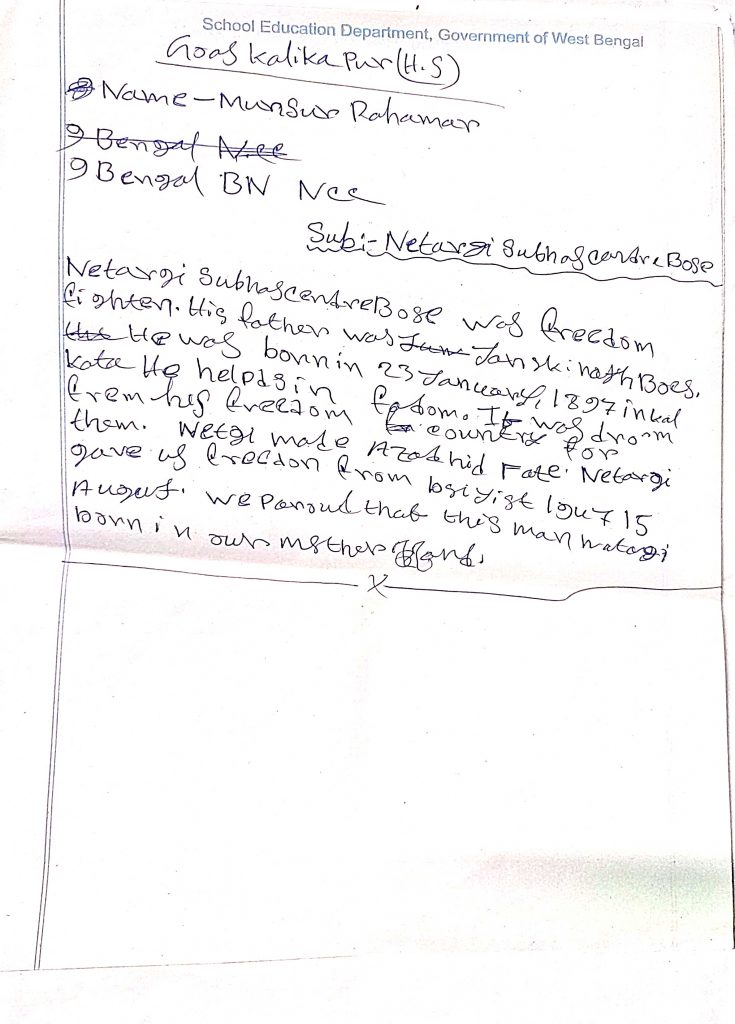 School Education Department, Government of West Bengal
Goas Kalika Pur (H.S)
Name - Munsur Rahaman
9 Bengal Ncc
9 Bengal BN Ncc
Subj:- Netargi Subhas centre Bose
Netargi Subhas centre Bose was freedom
fighten. His father was Janskinath Boes.
He was bonn in 23 January, 1897 in kal
kata He helpd in fedom. It was droom
frem his freedom country for
them. Netgi made Azad hid Fate. Netargi
gave us freedon from bsiyist 1947 15
August. we paroud that this man natargi
bonn in our msther land.
x